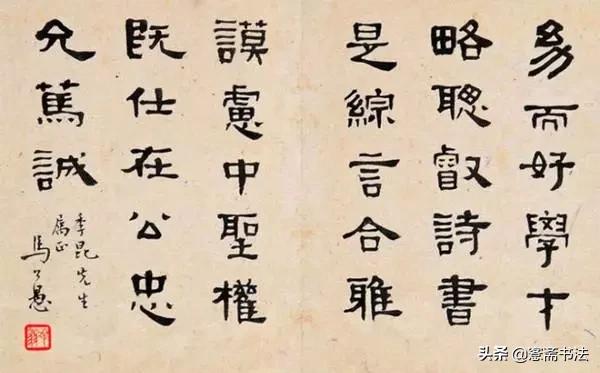 幼而好學才
略聰叡詩書
是綜言合雅
謨慮中聖權
既仕在公忠
允篤誠
季昆先生
属正
馬公愚
头条 @斋书法